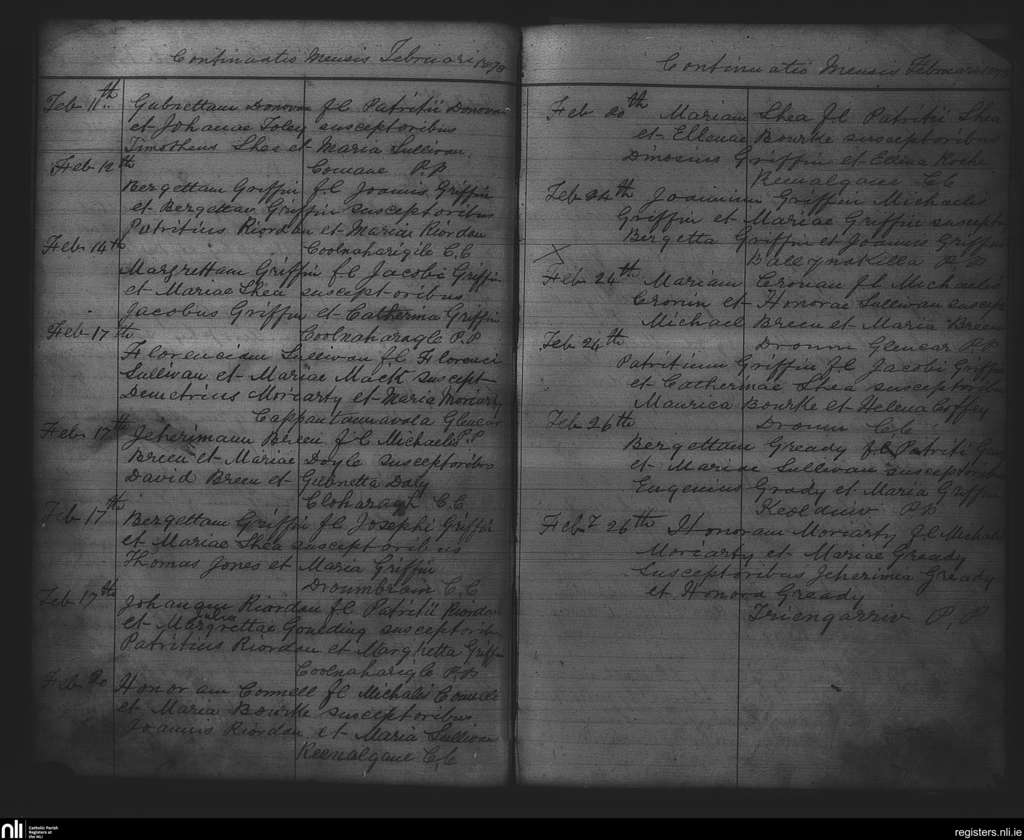 Continuatis Mensis Februari 1870
Feb 11th Gubnettam Donovan fl Patritii Donovan
et Johanae Foley susceptoribus
Timotheus Shea et Maria Sullivan
Comane P.P
Feb 12th
Bergettam Griffin f.l Joannis Griffin
et Bergettae Griffin susceptoribus
Patritius Riordan et Maria Riordan
Feb 14th Coolnaharigile C.C
Margrettam Griffin fl Jacobi Griffin
et Mariae Shea susceptoribus
Jacobus Griffin et Catherina Griffin
Feb 17th Coolnaharagle P.P
Florenciam Sullivan f.l. Florenci
Sullivan et Mariae Mack suscept
Demetrius Moriarty et Maria Moriarty
Glencar
Feb 17th Jeherimann Breen fl Michaelis P.P
Breen et Mariae Doyle susceptoribus
David Breen et Gubnetta Daly
Cloharagh C.C
Feb 17th
Bergettam Griffin fl Josephi Griffin
et Mariae Shea susceptoribus
Thomas Jones et Maria Griffin
Droumbrain C.C
Feb 17th
Johanam Riordan fl Patritii Riordan
et Margrettae Goulding susceptorib
Patritius Riordan et Margretta Griffin
Coolnaharigle P.P
Feb 20 Honoram Connell fl Michalis Connell
et Maria Bourke susceptoribus
Joannis Riordan et Maria Sullivan
Reenalgane C.C
Continuatio Mensis Februari 1870
Feb 20th Mariam Shea fl Patritii Shea
et Ellenae Bourke susceptoribus
Dinosius Griffin et Ellena Roche
Reenalgane C.C
Feb 24th Joannim Griffin Michaelis
Griffin et Mariae Griffin suscept
Bergetta Griffin et Joannis Griffin
Ballynakella P.P
X
Feb 24th Mariam Cronan fl Michaelis
Cronin et Honorae Sullivan suscept
Michael Breen et Maria Breen
Feb 24th Droum Glencar P.P
Patritium Griffin fl Jacobi Griffin
et Catherinae Shea susceptorib
Maurica Bourke et Helena Coffey
Feb 26th Droum C.C
Bergettam Gready fl Patriti
et Mariae Sullivan susceptorib
Eugenius Grady et Maria Griffin
P.P
Feb 26th Honoram Moriarty f.l Michael
Moriarty et Mariae Gready
Susceptoribus Jeherimea Gready
et Honora Gready
Friengarriv P.P
nli Catholic Parish
Registers at
the NLI
registers.nli.ie